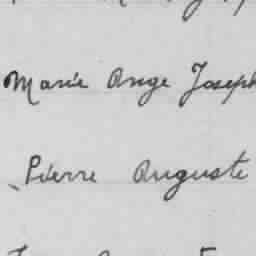 Marie Ange Joseph
Pierre Auguste